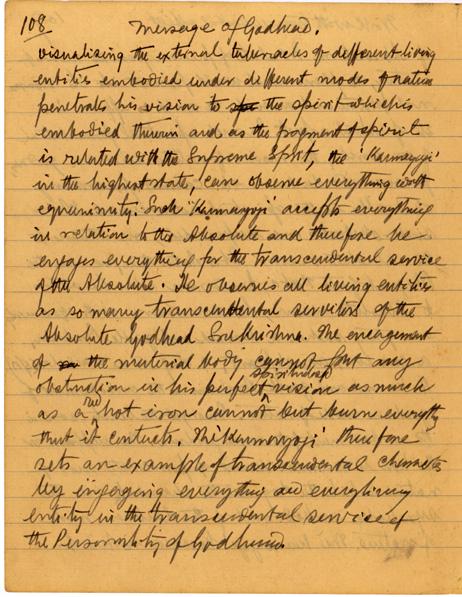 108
Message of Godhead.
visualising the external tabernacles of different living
entities embodied under different modes of nature
penetrates his vision to the spirit which is
embodied therein and as the fragment of spirit
is related with the Supreme Spirit, the 'Karmayogi'
in the highest state, can observe everything with
equanimity. Such 'Karmayogi' accepts everything
in relation to the Absolute and therefore he
engages everything for the transcendental service
of the Absolute. He observes all living entities
as so many transcendental servitors of the
Absolute Godhead Sri Krishna. The encagement
of the material body cannot put any
obstruction in his perfect spiritual vision as much
as a red hot iron cannot but burn everything
that it contacts. The 'Karmayogi' therefore
sets an example of transcendental character
by engaging everything and every living
entity in the transcendental service of
the Personality of Godhead.